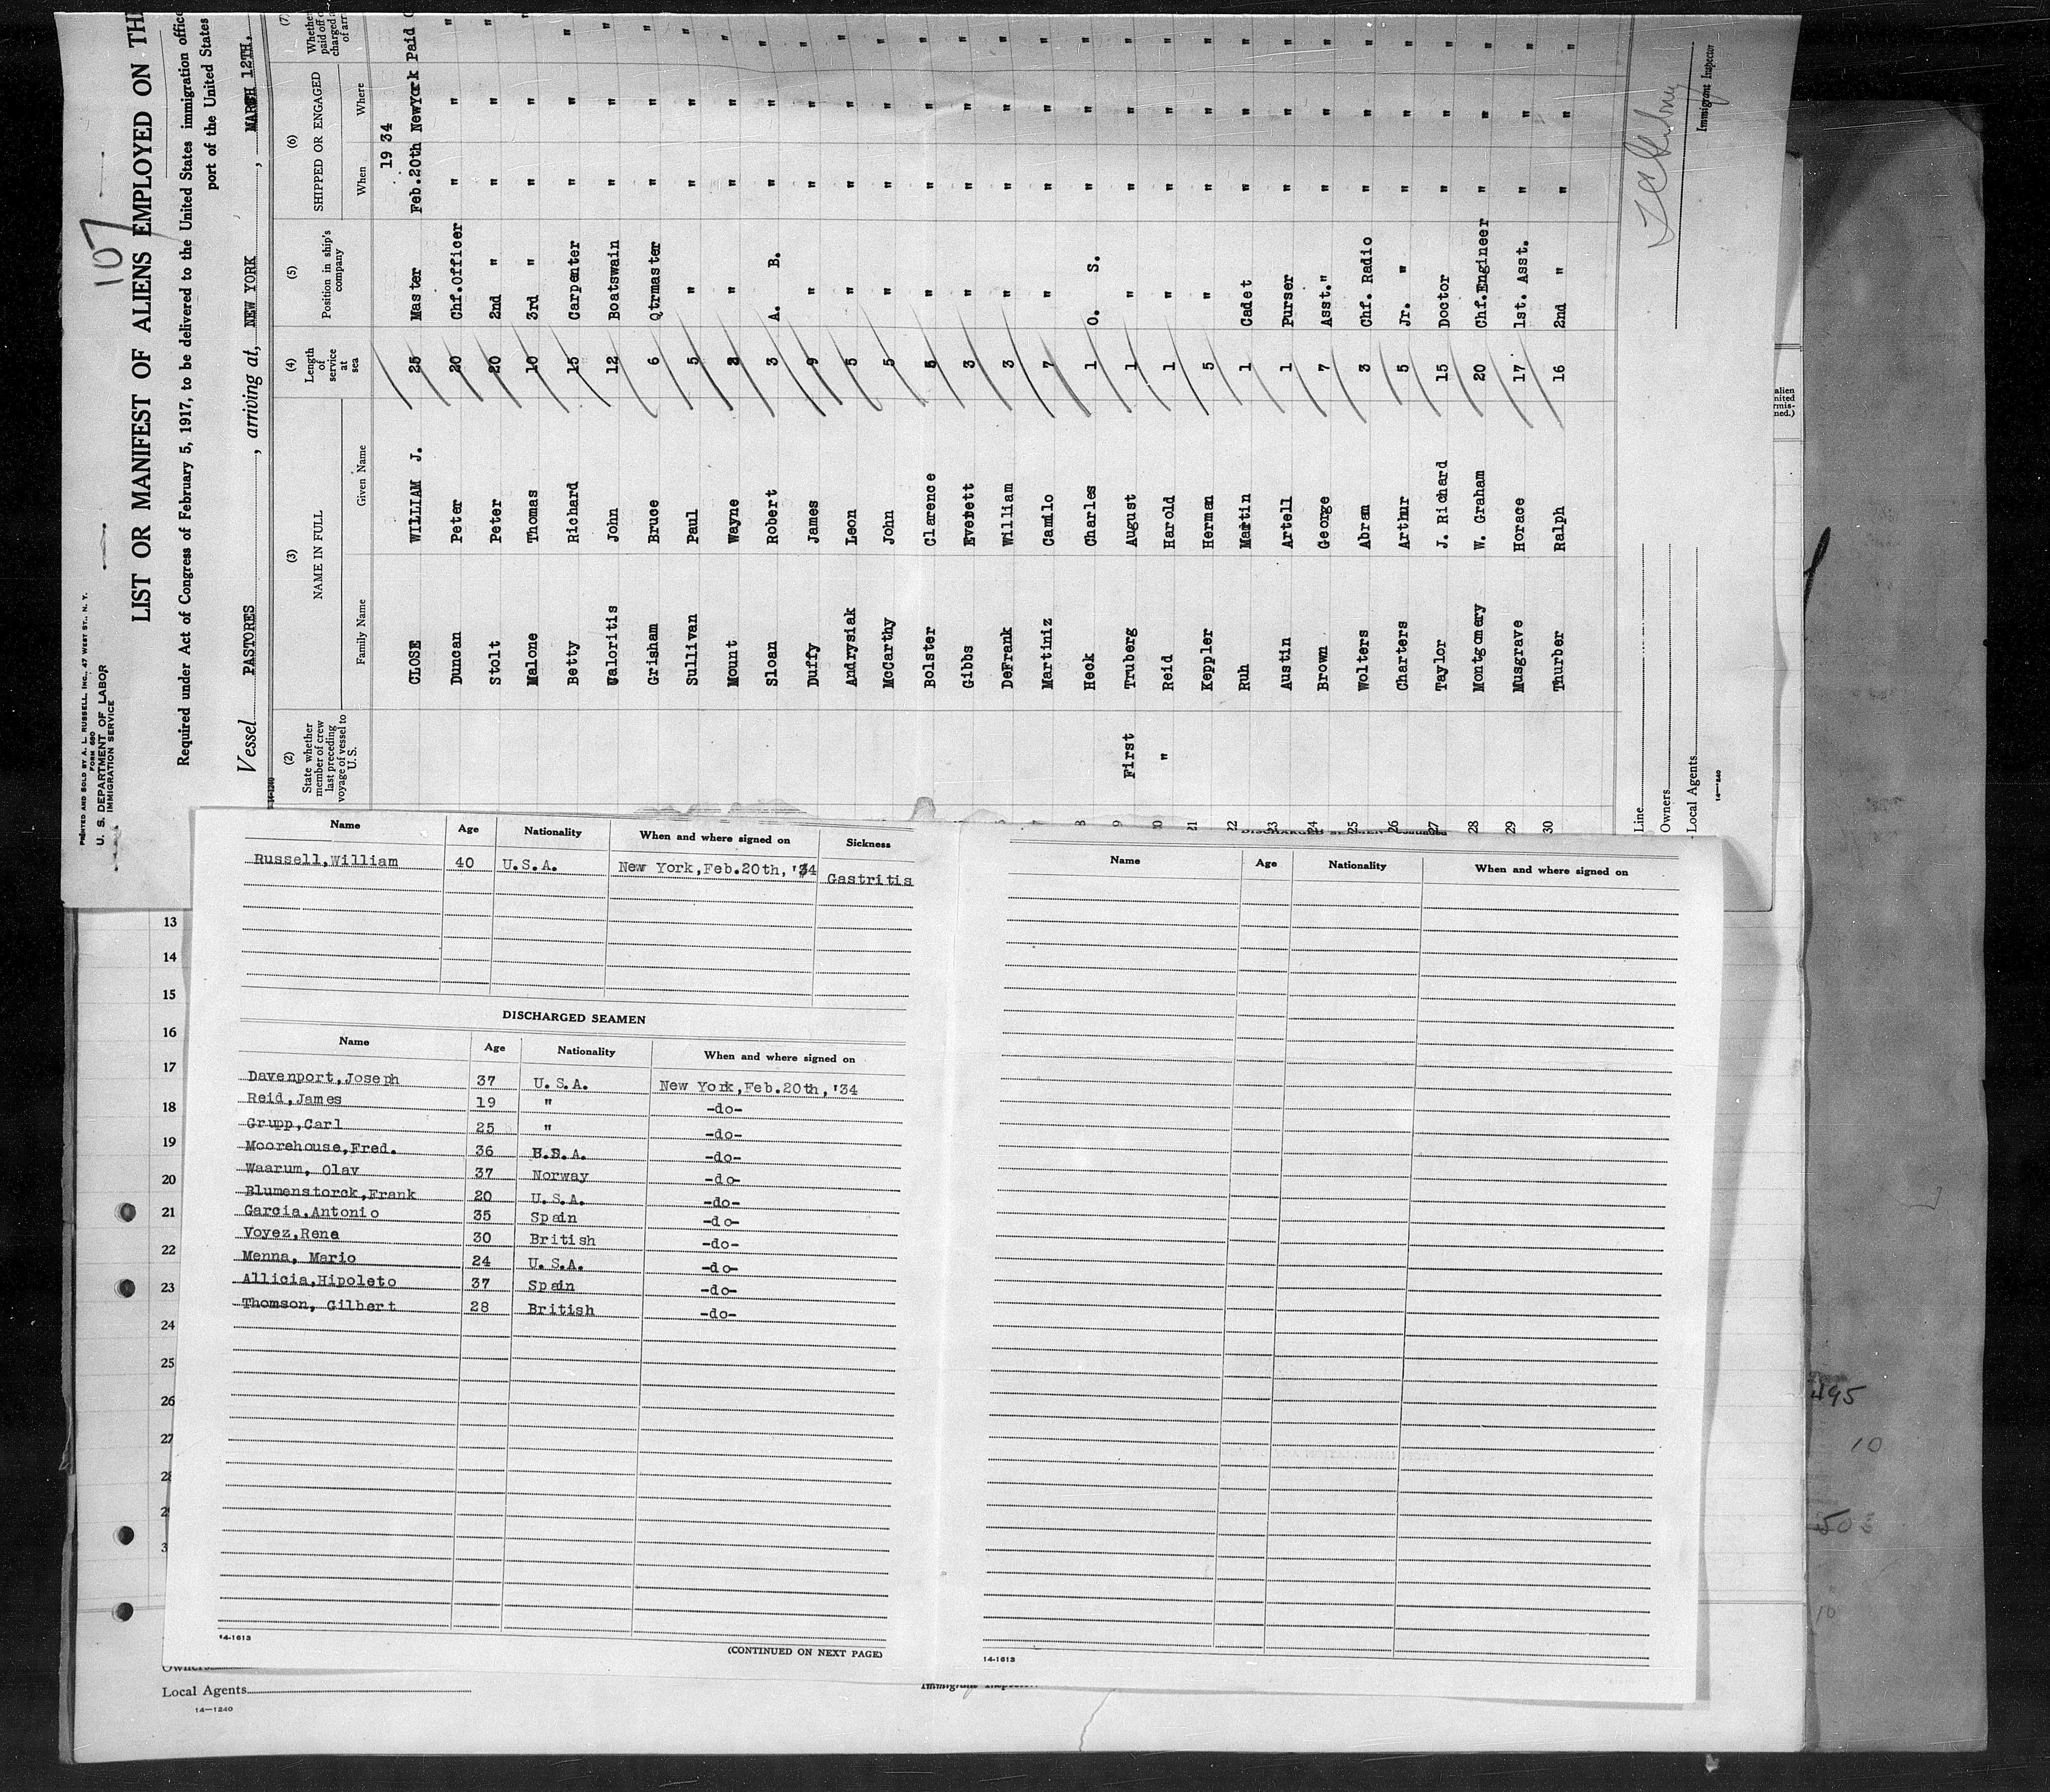 PRINTED AND SOLD BY A. L. RUSSELL, INC., 47 WEST ST., N. Y.
FORM 680
U. S. DEPARTMENT OF LABOR
IMMIGRATION SERVICE
107
LIST OR MANIFEST OF ALIENS EMPLOYED ON TH
Required under Act of Congress of February 5, 1917, to be delivered to the United States immigration offic
port of the United States
Vessel PASTORES, arriving at, NEW YORK, MARCH 12TH.
14-1240
(2) (3) (4) (5) (6) (7)
State whether member of crew last preceding voyage of vessel to U.S. NAME IN FULL Length of service at sea Position in ship's company SHIPPED OR ENGAGED
Family Name Given Name When Where
19 34
CLOSE WILLIAM J. 25 Master Feb.20th NewYork Paid
Duncan Peter 20 Chf.Officer " " "
Stolt Peter 20 2nd " " " "
Malone Thomas 10 3rd " " " "
Betty Richard 15 Carpenter " " "
Valoritis John 12 Boatswain " " "
Grisham Bruce 6 Qtrmaster " " "
Sullivan Paul 5 " " " "
Mount Wayne " " " "
Sloan Robert 3 A. B. " " "
Duffy James 9 " " " "
Andrysiak Leon 5 " " " "
McCarthy John 5 " " " "
Bolster Clarence 5 " " " "
Gibbs Everett 3 " " " "
DeFrank William 3 " " " "
Martiniz Camilo 7 " " " "
8 Heck Charles 1 O. S. " " "
9 First Truberg August 1 " " " "
10 " Reid Harold 1 " " " "
21 Keppler Herman 5 " " " "
22 Ruh Martin 1 Cadet " " "
23 Austin Artell 1 Purser " " "
24 Brown George 7 Asst." " " "
25 Wolters Abram 3 Chf. Radio " " "
26 Charters Arthur 5 Jr. " " " "
27 Taylor J. Richard 15 Doctor " " "
28 Montgomery W. Graham 20 Chf.Engineer " " "
29 Musgrave Horace 17 1st. Asst. " " "
30 Thurber Ralph 16 2nd " " " "
Line
Owners
Local Agents
14-1240
Immigrant Inspector
Name Age Nationality When and where signed on Sickness
Russell,William 40 U.S.A. New York,Feb.20th,'34 Gastritis
DISCHARGED SEAMEN
Name Age Nationality When and where signed on
Davenport,Joseph 37 U.S.A. New York,Feb.20th,'34
Reid,James 19 " -do-
Grupp,Carl 25 " -do-
Moorehouse,Fred. 36 U.S.A. -do-
Waarum, Olav 37 Norway -do-
Blumenstorck,Frank 20 U.S.A. -do-
Garcia,Antonio 35 Spain -do-
Voyez,Rene 30 British -do-
Menna, Mario 24 U.S.A. -do-
Allicia,Hipoleto 37 Spain -do-
Thomson, Gilbert 28 British -do-
14-1613
(CONTINUED ON NEXT PAGE)
Name Age Nationality When and where signed on
14-1613
13
14
15
16
17
18
19
20
21
22
23
24
25
26
27
28
Owners
Local Agents
14-1240
Immigrant Inspector
495
10
10